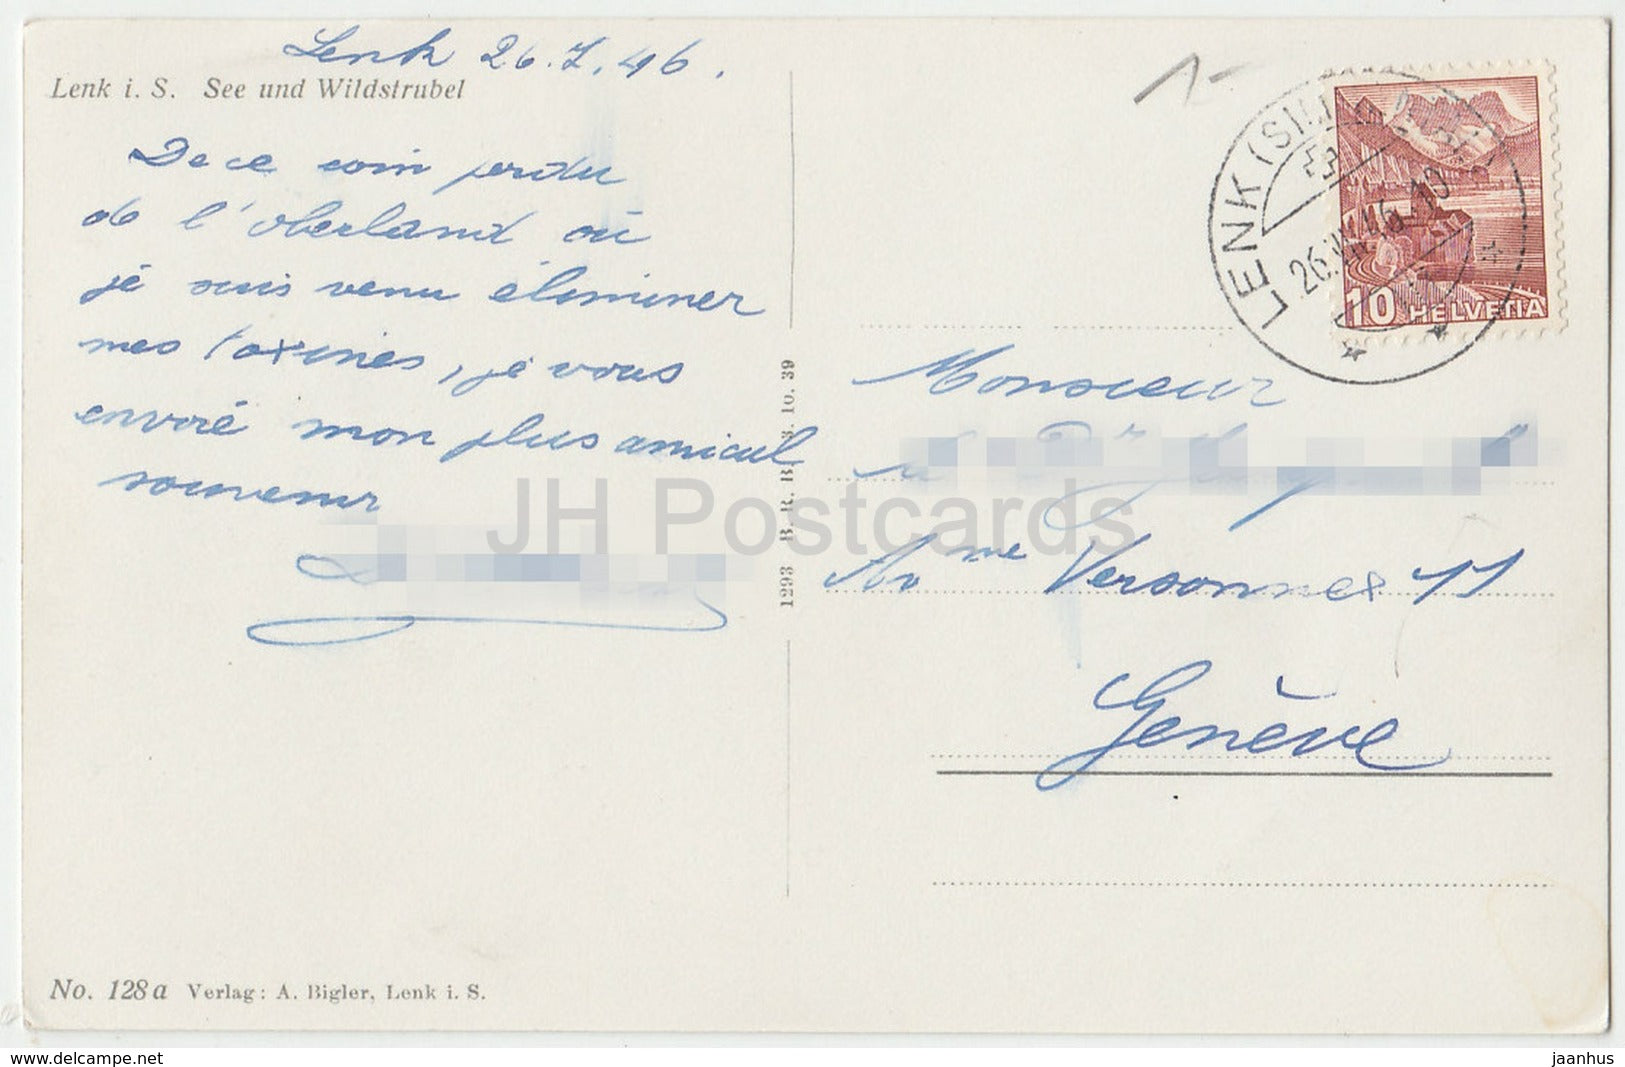 Lenk 26.7.46.
Lenk i. S. See und Wildstrubel
De ce coin perdu
de l'oberland où
je suis venu éliminer
mes toxines, je vous
envoie mon plus amical
souvenir
1293 B. R. B. 3. 10. 39
LENK (SIMM
26.VII.46-10
10 HELVETIA
Monsieur
Av me Versonnex 11
Genève
No. 128a Verlag: A. Bigler, Lenk i. S.
JH Postcards
www.delcampe.net
jaanhus